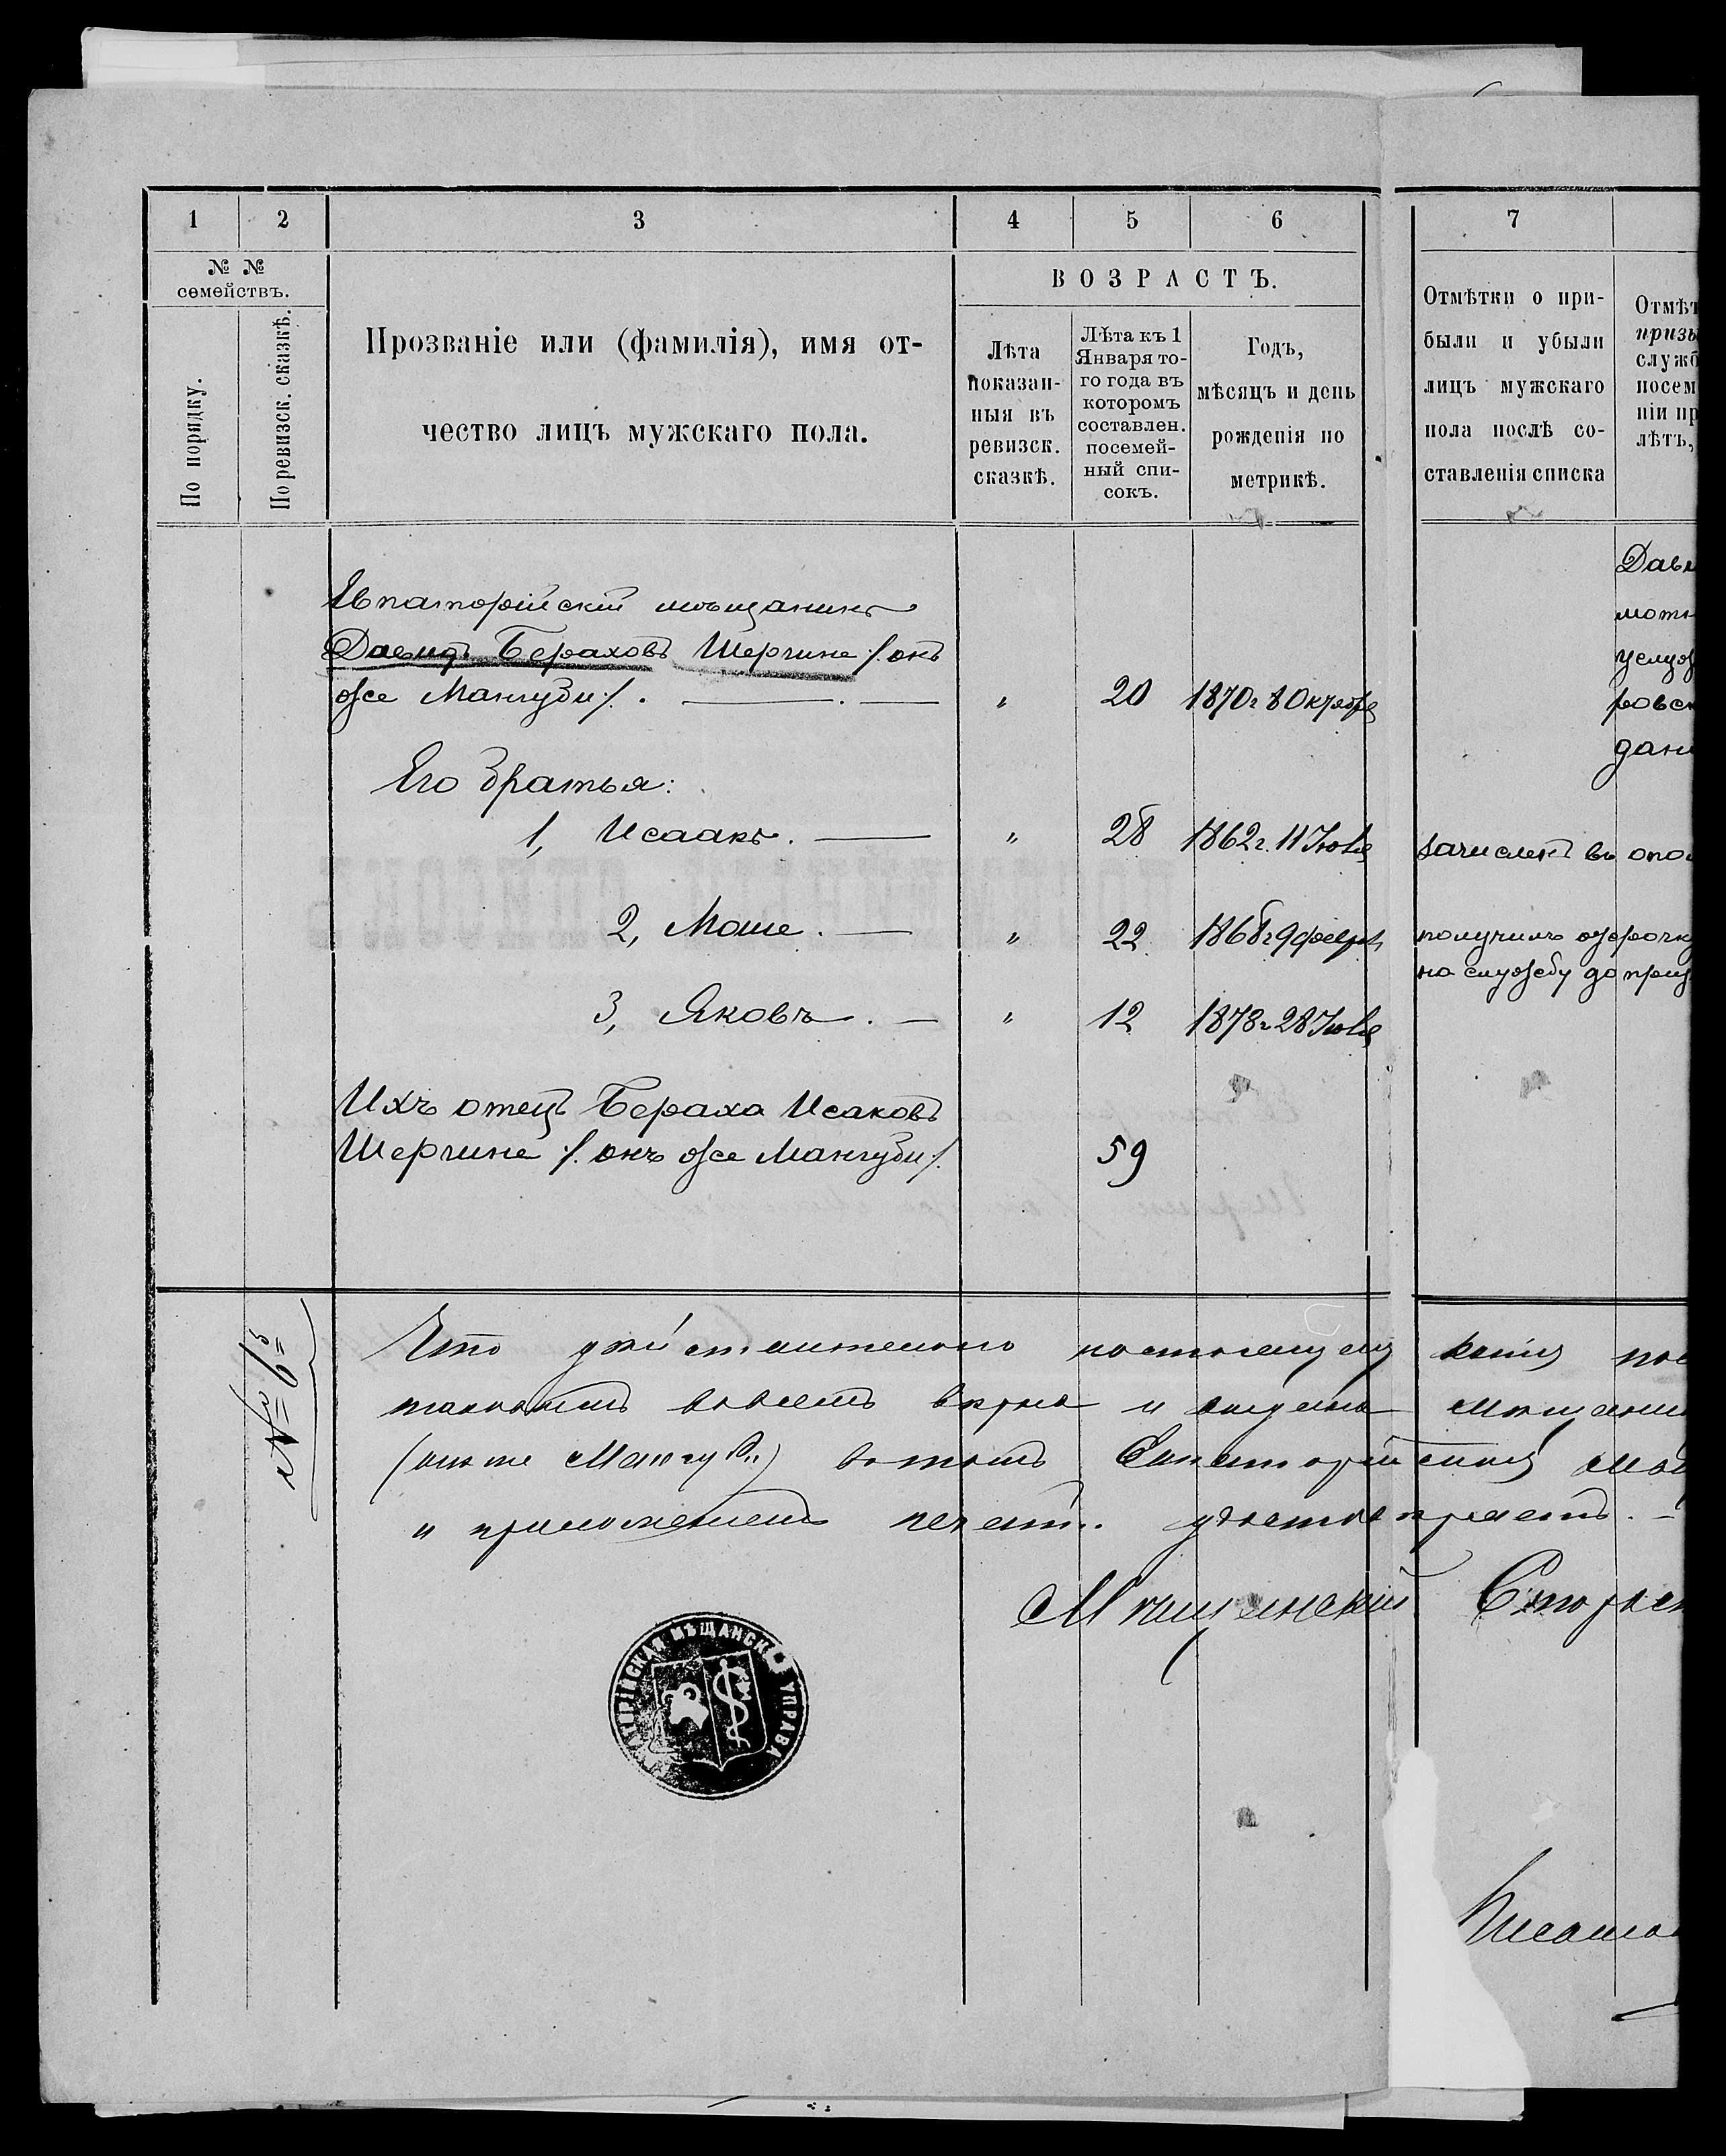 1 2 3 4 5 6 7
№ № семействъ.
По порядку.
По ревизск. сказкѣ.
Прозваніе или (фамилія), имя от-
чество лицъ мужскаго пола.
ВОЗРАСТЪ.
Лѣта
показан-
ныя въ
ревизск.
сказкѣ.
Лѣта къ 1
Января то-
го года въ
которомъ
составлен.
посемей-
ный спи-
сокъ.
Годъ,
мѣсяцъ и день
рожденія по
метрикѣ.
Отмѣтки о при-
были и убыли
лицъ мужскаго
пола послѣ со-
ставленія списка
Отмѣт
призы
служб
посем
ніи пр
лѣтъ,
Евпаторійскій мѣщанинъ
Давидъ Бераховъ Шергине /.онъ
же Мангуби/. — . — " 20 1870г 8 Октября
Дави
мотн
услуж
ровск
дани
Его братья:
1, Исаакъ. — " 28 1862г. 11 Июля зачисленъ въ опол
2, Моше. — " 22 1868г 9 февр. получилъ отсрочку
на службу до приз
3, Яковъ. — " 12 1878г. 28 Июля
Ихъ отецъ Бераха Исаковъ
Шергине /. онъ же Мангуби/. 59
№ 65
Что дѣйствительно настоящая копія пос
во всемъ вѣрна и выдана мѣщанин
(онъ же Мангуби) въ томъ Евпаторійская мѣщ
и приложеніемъ печати удостовѣряетъ. —
Мѣщанскій Старост
ЕВПАТОРІЙСКАЯ МѢЩАНСКАЯ УПРАВА